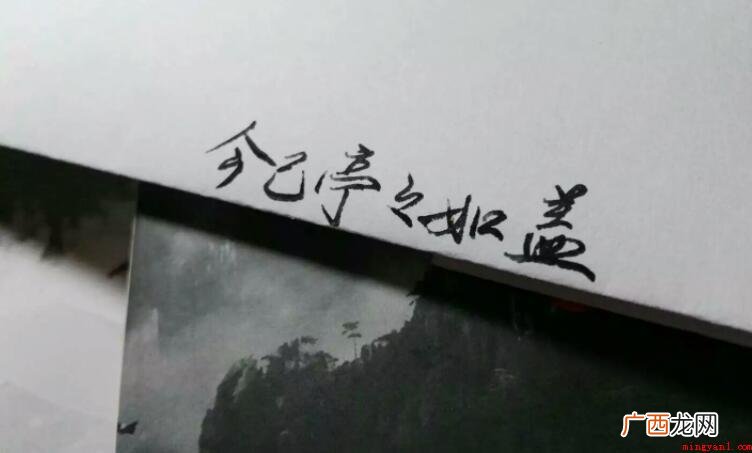 今已亭々如盖
广西龙网
mingyan1.com